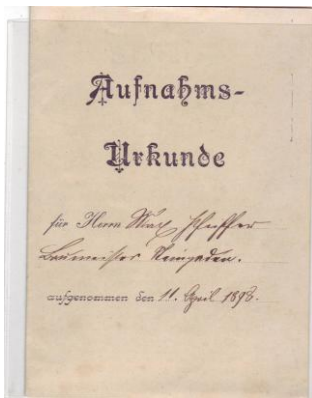 Aufnahms-
Urkunde
für Herrn Max Pfeiffer
Baumeister Steingaden.
aufgenommen den 11. April 1898.